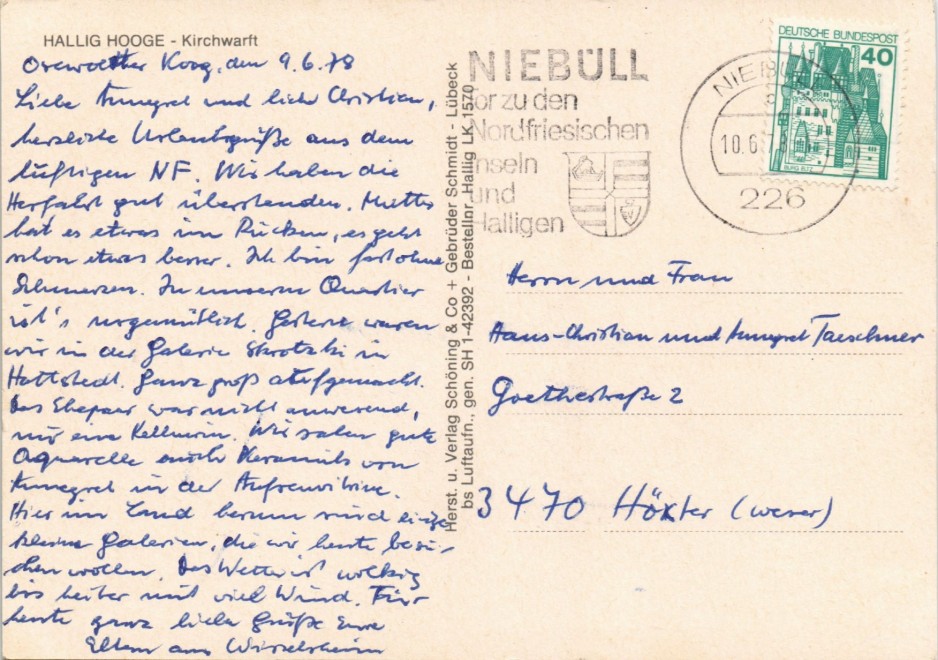 HALLIG HOOGE - Kirchwarft
Koog, den 9.6.78
Liebe Annegret und lieber Christian,
herzliche Urlaubsgrüße aus dem
luftigen NF. Wir haben die
Herfahrt gut überstanden. Mutter
hat es etwas im Rücken, es geht
schon etwas besser. Ich bin fast ohne
Schmerzen. In unserm Quartier
ist's urgemütlich. Gestern waren
wir in der Galerie Skrotzki in
Hattstedt. Ganz groß aufgemacht.
Das Ehepaar war nicht anwesend,
nur eine Kellnerin. Wir sahen gute
Aquarelle auch Keramik von
Annegret in der
Hier im Land herum sind einige
kleine Galerien, die wir heute besu-
chen wollen. Das Wetter ist wolkig
bis heiter mit viel Wind. Für
heute ganz liebe Grüße Eure
Eltern aus
Herst. u. Verlag Schöning & Co + Gebrüder Schmidt - Lübeck
bs Luftaufn., gen. SH 1-42392 - Bestellnr. Hallig LK 1570
NIEBÜLL
Tor zu den
Nordfriesischen
Inseln
und
Halligen
NIEBÜLL
10.6.
226
DEUTSCHE BUNDESPOST
40
BURG ELTZ
Herrn und Frau
Hans-Christian und Annegret Taeschner
Goethestraße 2
3470 Höxter (Weser)